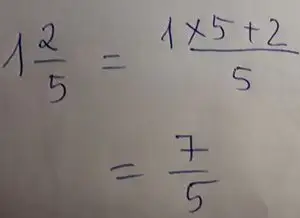 1 2/5 = (1×5+2)/5
= 7/5